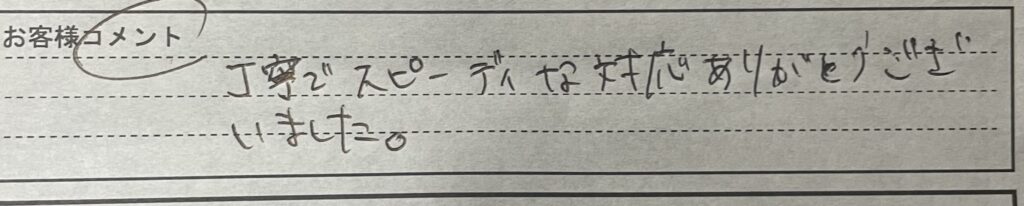 お客様コメント
丁寧でスピーディな対応ありがとうござ
いました。